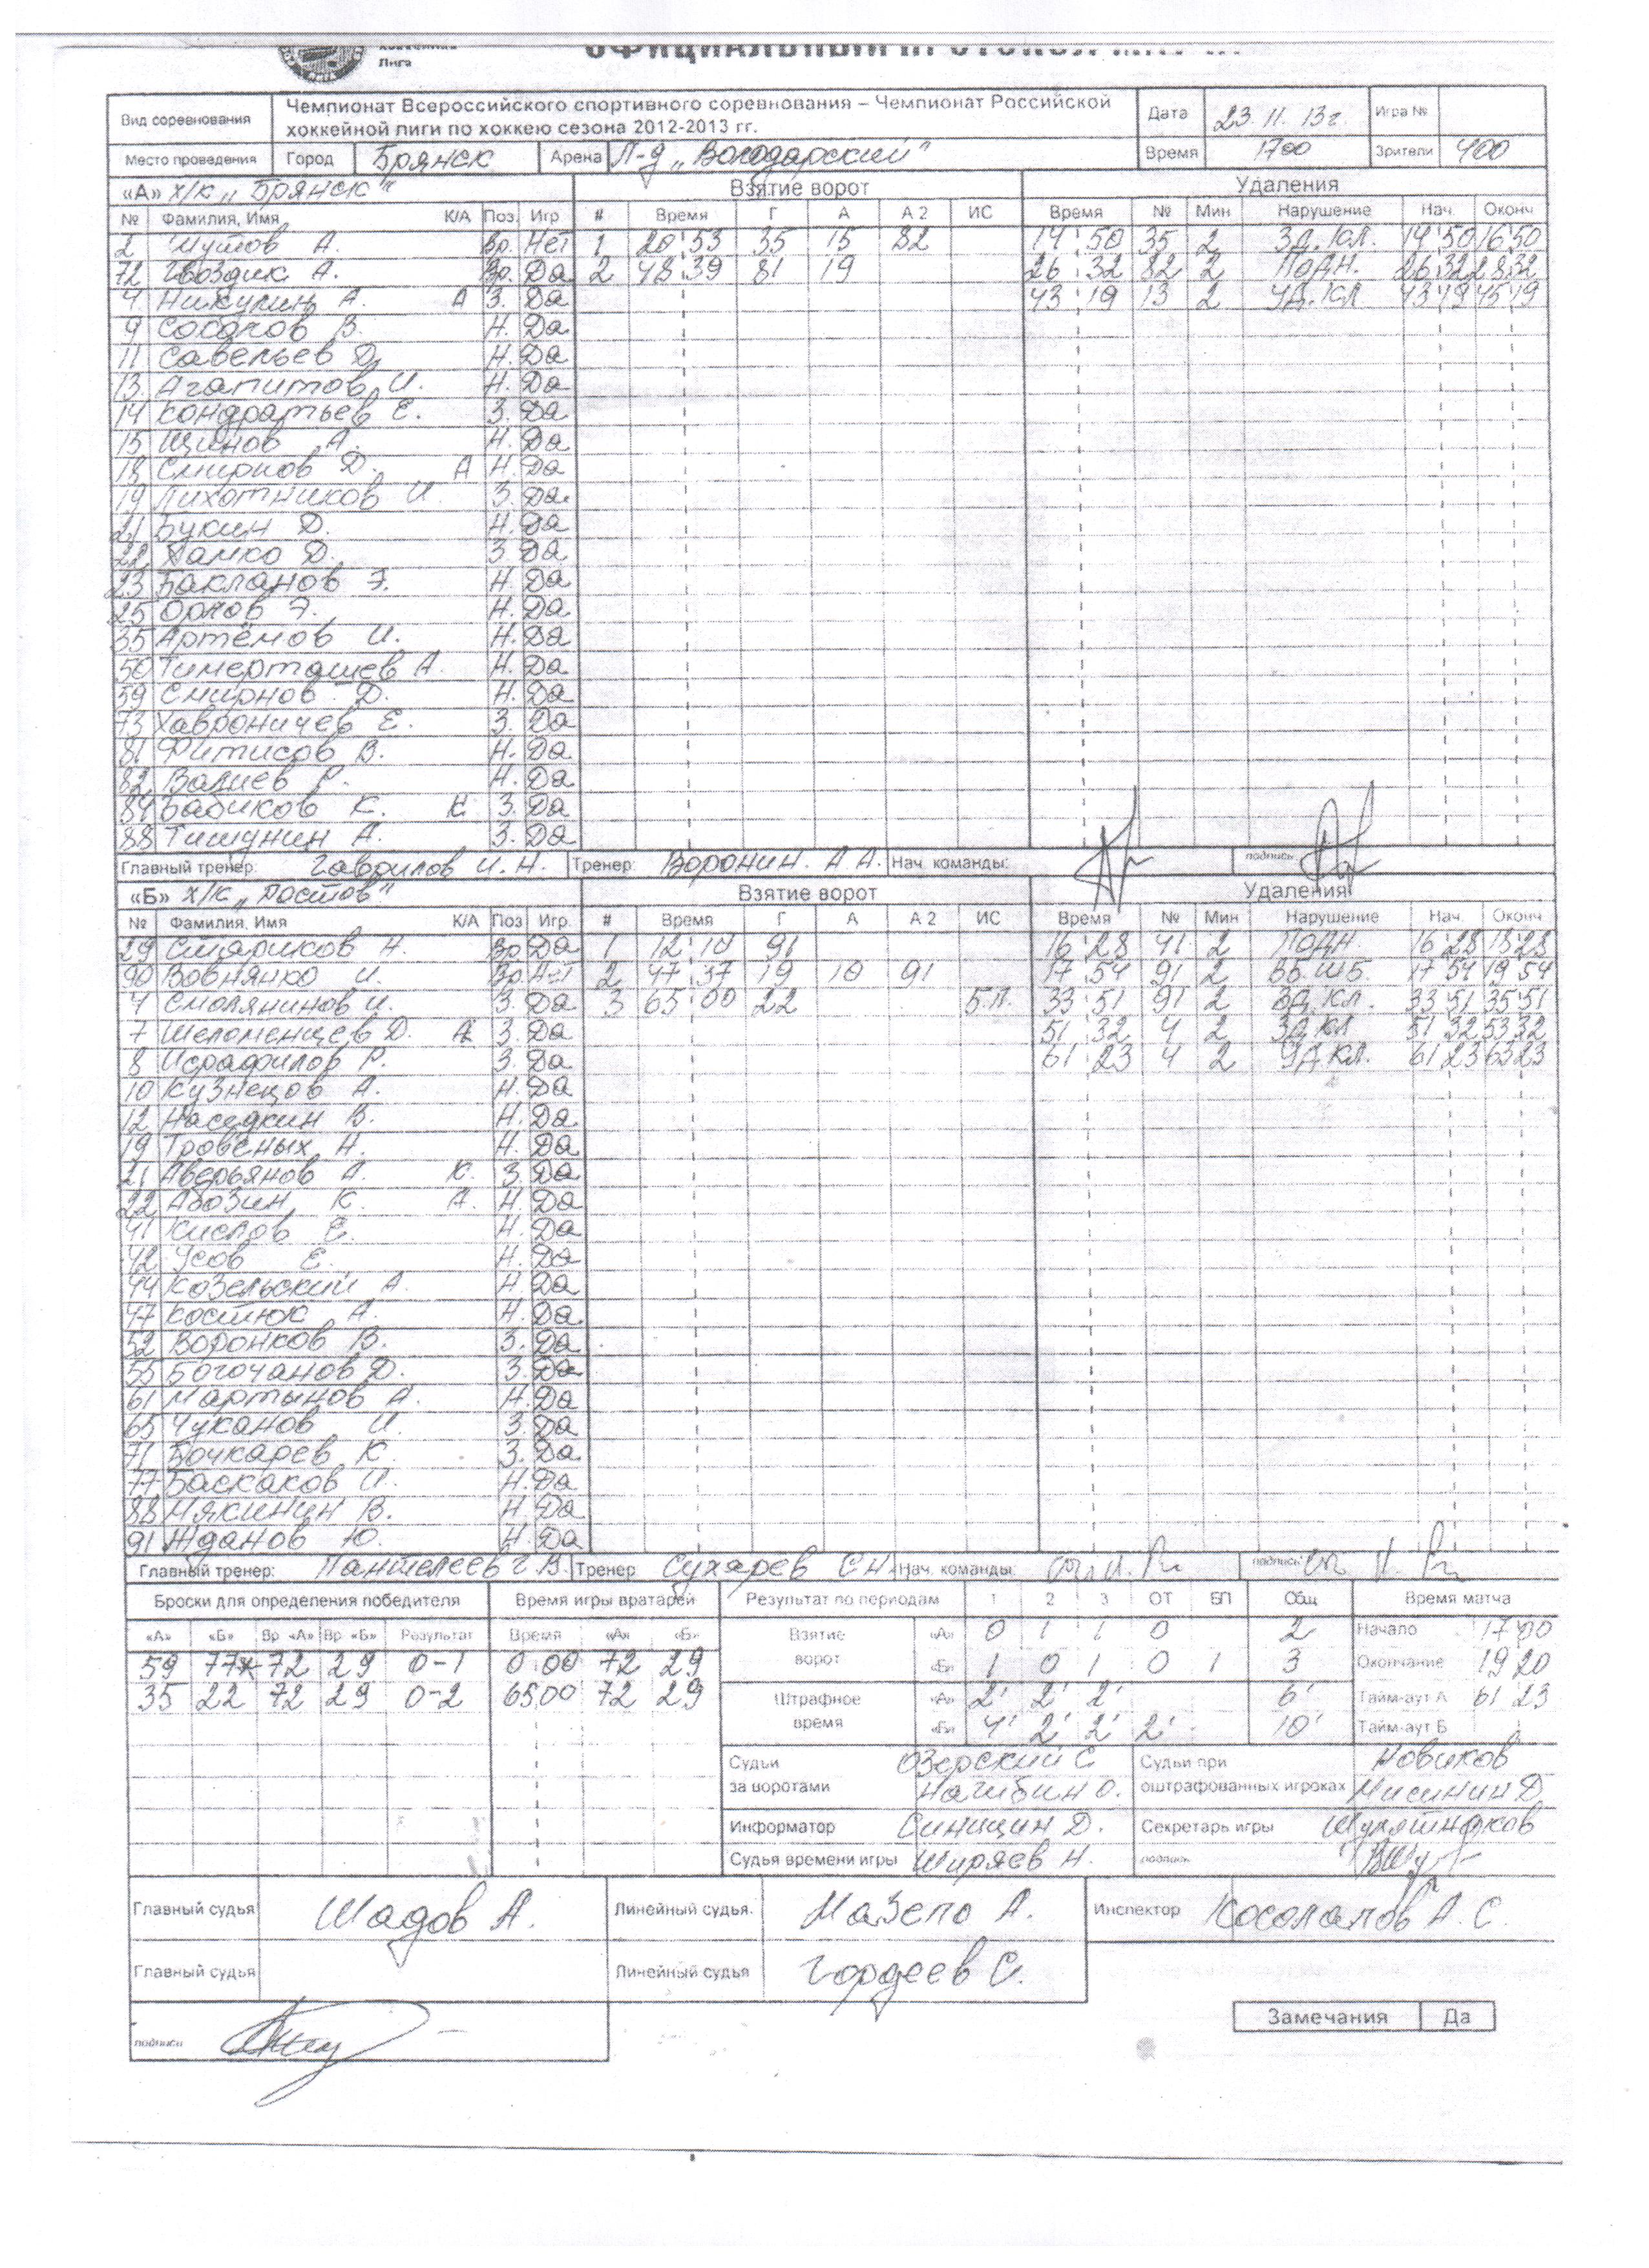 Лига
Вид соревнования Чемпионат Всероссийского спортивного соревнования – Чемпионат Российской хоккейной лиги по хоккею сезона 2012-2013 гг. Дата 23.11.13г. Игра №
Место проведения Город Брянск Арена Л-д „Володарский" Время 1700 Зрители 400
«А» Х/К „Брянск" Взятие ворот Удаления
№ Фамилия, Имя К/А Поз. Игр # Время Г А А 2 ИС Время № Мин Нарушение Нач. Оконч
2 А. Вр. Нет 1 20 53 35 15 82 14 50 35 2 ЗД.КЛ. 14 50 16 50
72 Гвоздик А. Вр. Да 2 48 39 81 19 26 32 82 2 ПОДН. 26 32 28 32
4 Никулин А. А З. Да 43 19 13 2 УД.КЛ 43 19 45 19
9 В. Н. Да
11 Савельев Д. Н. Да
13 Агапитов И. Н. Да
14 Кондратьев Е. З. Да
15 Щинов А. Н. Да
18 Смирнов Д. А Н. Да
19 Лихотников И. З. Да
21 Букин Д. Н. Да
22 Д. З. Да
23 Бакланов Э. Н. Да
25 Орлов Э. Н. Да
35 Артёмов И. Н. Да
50 Тимерташев А. Н. Да
59 Смирнов Д. Н. Да
73 Хаврoничев Е. З. Да
81 Фитисов В. Н. Да
82 Валиев Р. Н. Да
84 Бабиков К. К З. Да
88 Тишунин А. З. Да
Главный тренер: Гаврилов И.Н. Тренер: Воронин А А. Нач. команды: подпись
«Б» Х/К „Ростов" Взятие ворот Удаления
№ Фамилия, Имя К/А Поз Игр. # Время Г А А 2 ИС Время № Мин Нарушение Нач. Оконч
29 Стариков Н. Вр Да 1 12 10 91 16 28 41 2 ПОДН. 16 28 18 28
90 Вовнянко И. Вр. Нет 2 47 37 19 10 91 17 54 91 2 ВБ.ШБ. 17 54 19 54
4 Смолянинов И. З. Да 3 65 00 22 Б.П. 33 51 91 2 ЗД.КЛ. 33 51 35 51
7 Шеломенцев Д. А З. Да 51 32 4 2 ЗД.КЛ 51 32 53 32
8 Исрафилов Р. З. Да 61 23 4 2 УД.КЛ. 61 23 63 23
10 Кузнецов А. Н. Да
12 Наседкин В. Н. Да
19 Н. Н. Да
21 Аверьянов А. К. З. Да
22 Абозин К. А. Н. Да
41 Кислов Е. Н. Да
42 Усов Е. Н. Да
44 Козельский А. Н. Да
47 Костюк А. Н. Да
52 Воронков В. З. Да
55 Богочанов Д. З. Да
61 Мартынов А. Н. Да
65 Чуканов И. З. Да
71 Бочкарев К. З. Да
77 Баскаков И. Н. Да
88 Мякинин В. Н. Да
91 Жданов Ю. Н. Да
Главный тренер: Пантелеев Г.В. Тренер Сухарев С Н. Нач. команды: подпись:
Броски для определения победителя Время игры вратарей Результат по периодам 1 2 3 ОТ БП Общ Время матча
«А» «Б» Вр «А» Вр «Б» Результат Время «А» «Б» Взятие ворот «А» 0 1 1 0 2 Начало 17 00
59 77 72 29 0-1 0 00 72 29 «Б» 1 0 1 0 1 3 Окончание 19 20
35 22 72 29 0-2 65 00 72 29 Штрафное время «А» 2' 2' 2' 6' Тайм-аут А 61 23
«Б» 4' 2' 2' 2' 10' Тайм-аут Б
Судьи за воротами Озерский С Нагибин О. Судьи при оштрафованных игроках Новиков Мисинин Д.
Информатор Синицин Д. Секретарь игры
Судья времени игры Ширяев Н. подпись
Главный судья Шадов А. Линейный судья. Мазепо А. Инспектор Косолапов А.С.
Главный судья Линейный судья Гордеев С.
подпись
Замечания Да